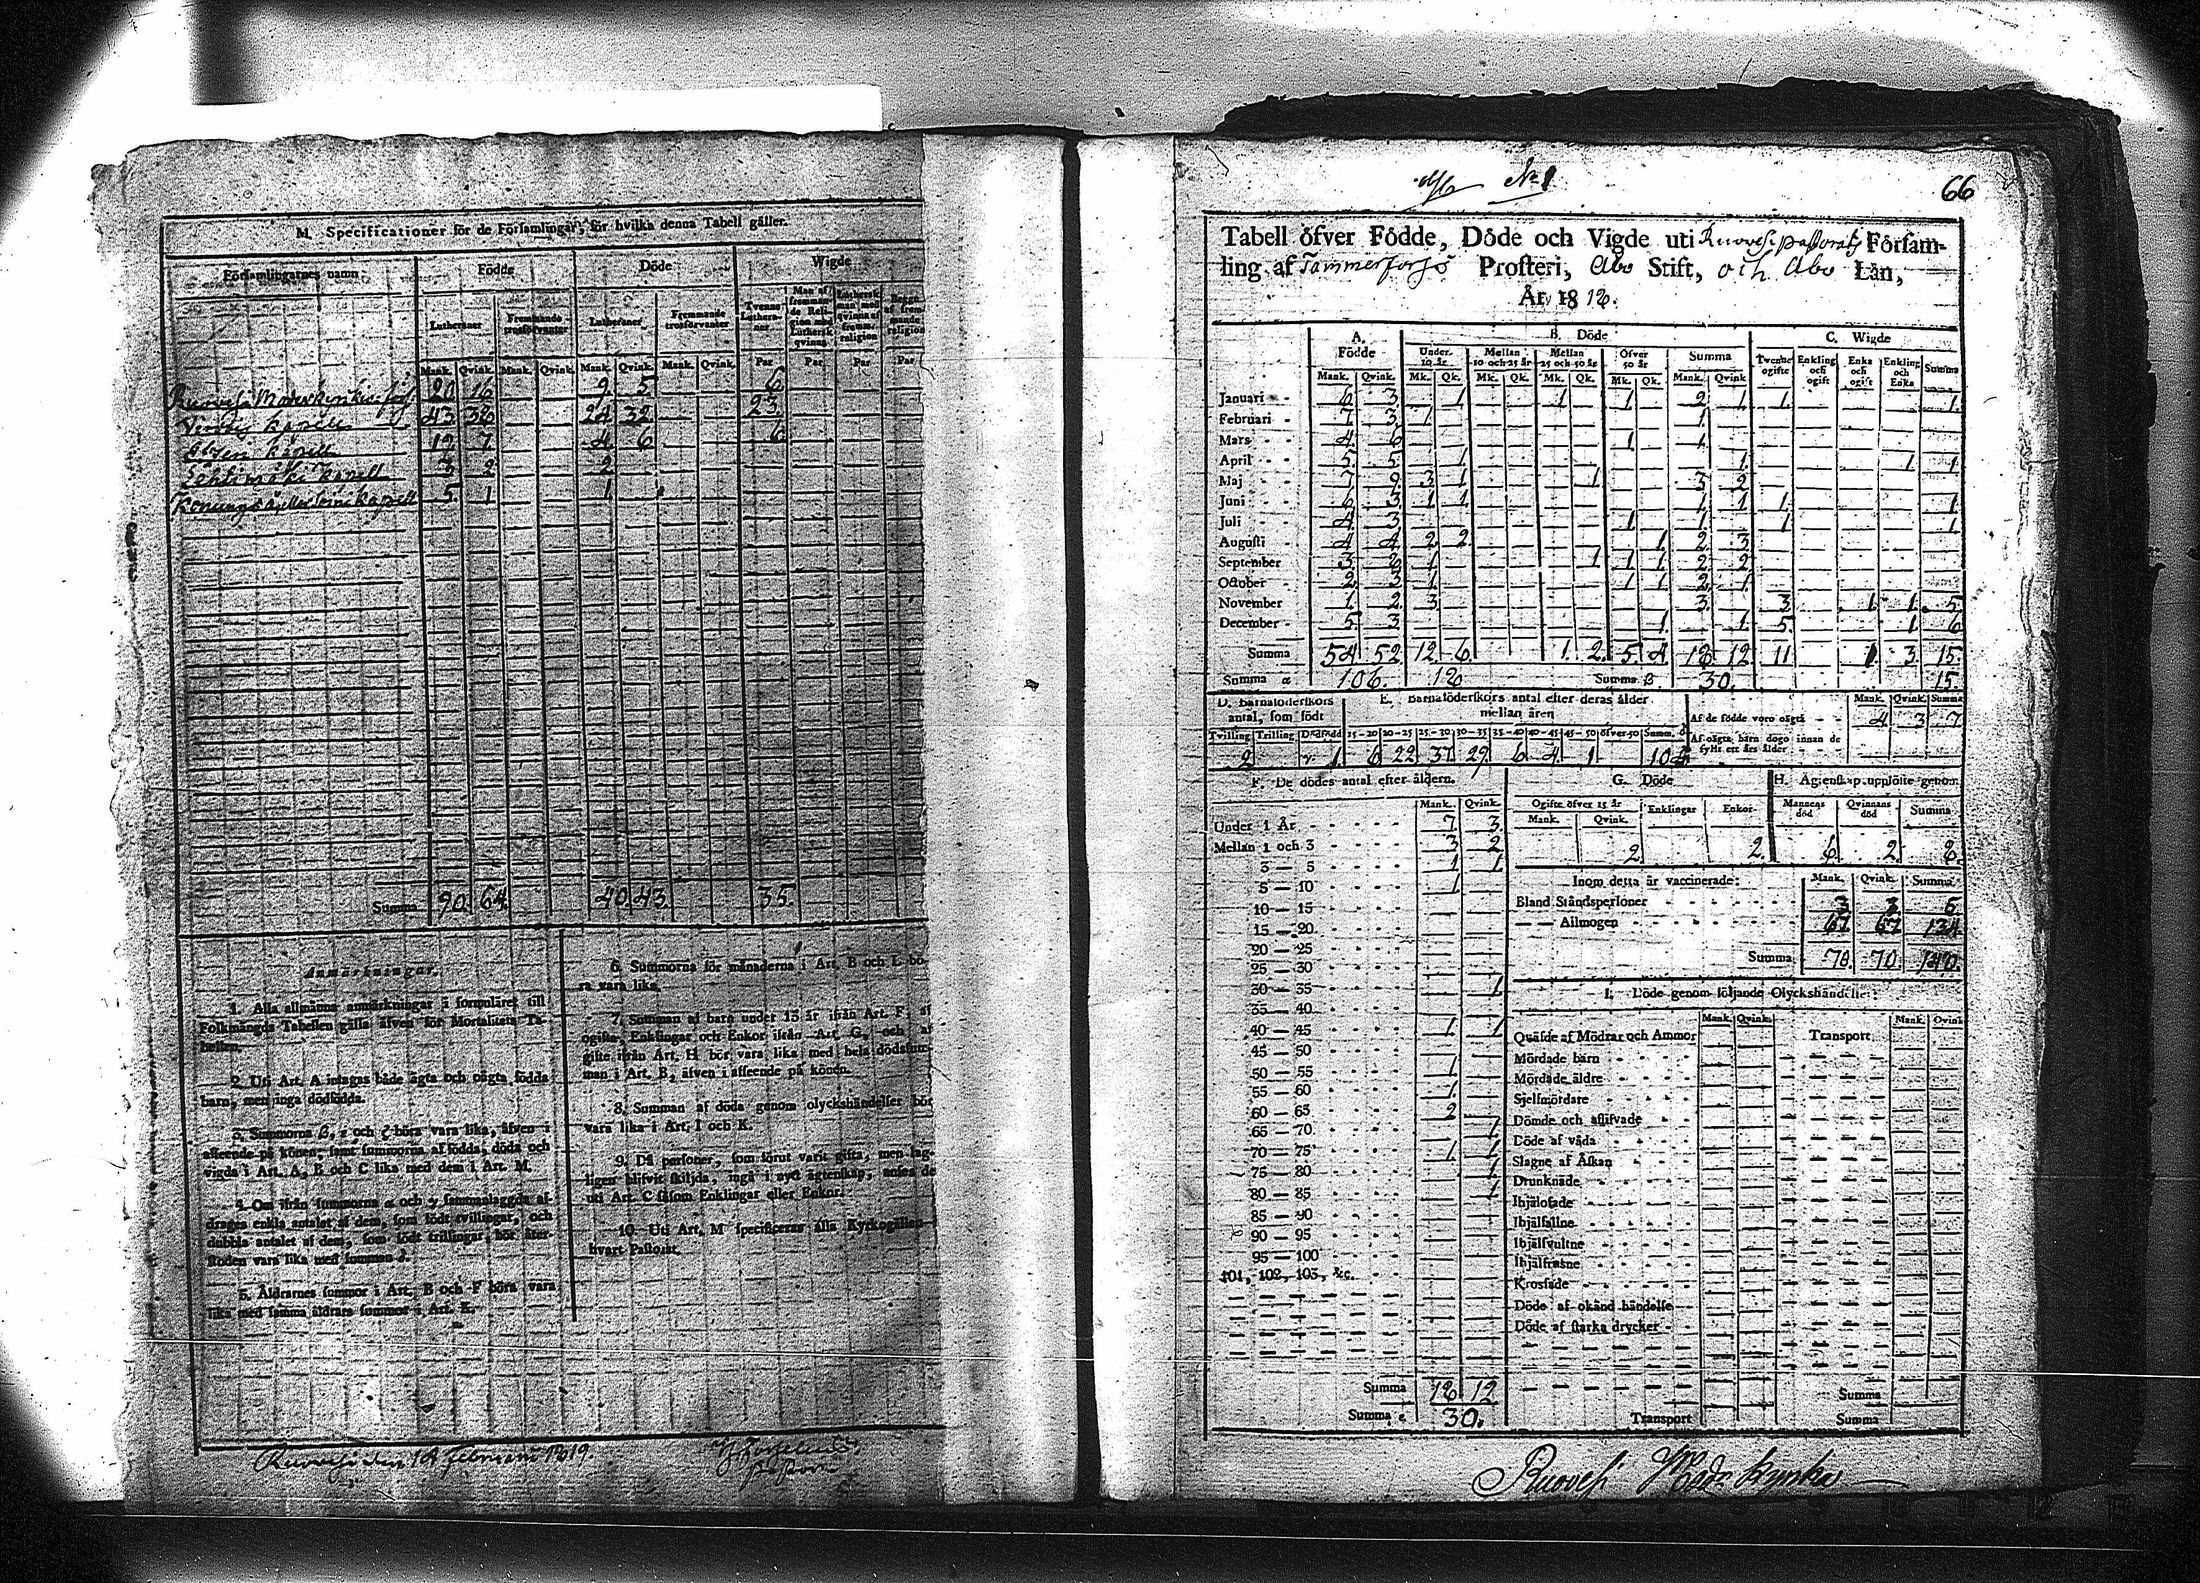 M. Specificationer för de Församlingar, för hvilka denna Tabell gäller.
Församlingarnes namn Födde Döde Wigde
Lutheraner Fremmande trosförvanter Lutheraner Fremmande trosförvanter Tvenne Lutheraner Man af fremmande Religion med Luthersk qvinna Luthersk man med qvinna af fremm. religion Begge af fremmande religion
Mank. Qvink. Mank. Qvink. Mank. Qvink. Mank. Qvink. Par Par Par Par
Ruovesi Moderkyrkio förs. 20 16 9 5 6
kapell 43 38 24 32 23
kapell 19 7 4 6 6
kapell 3 2 2
kapell 5 1 1
Summa 90. 64. 40. 43. 35.
Anmärkningar.
1. Alla allmänna anmärkningar i formuläret till
Folkmängds Tabellen gälla äfven för Mortalitets Ta-
bellen.
2. Uti Art. A intagas både ägta och oägta födda
barn, men inga dödfödda.
3. Summorna β, ε och ζ böra vara lika, äfven i
afseende på könen; samt summorna af födda, döda och
vigda i Art. A, B och C lika med dem i Art. M.
4. Om ifrån summorna α och γ sammanlaggda af-
drages enkla antalet af dem, som födt tvillingar, och
dubbla antalet af dem, som födt trillingar, bör åter-
stoden vara lika med summan δ.
5. Åldrarnes summor i Art. B och F böra vara
lika med samma åldrars summor i Art. K.
6. Summorna för månaderna i Art. B och L bö-
ra vara lika.
7. Summan af barn under 15 år ifrån Art. F, af
ogifta, Enklingar och Enkor ifrån Art. G, och af
gifte ifrån Art. H bör vara lika med hela dödsum-
man i Art. B, äfven i afseende på könen.
8. Summan af döda genom olyckshändelser bör
vara lika i Art. I och K.
9. Då personer, som förut varit gifta, men lag-
ligen blifvit skiljda, ingå i nytt ägtenskap, anses de
uti Art. C såsom Enklingar eller Enkor.
10. Uti Art. M specificeras alla Kyrkogällen i
hvart Pastorat.
Ruovesi den 18 Februarii 1819.
66
Tabell öfver Födde, Döde och Vigde uti Ruovesi pastorats Försam-
ling af Tammerfors Prosteri, Åbo Stift, och Åbo Län,
År 1818.
A. Födde B. Döde C. Wigde
Under 10 år Mellan 10 och 25 år Mellan 25 och 50 år Öfver 50 år Summa Tvenne ogifte Enkling och ogift Enka och ogift Enkling och Enka Summa
Mank. Qvink. Mk. Qk. Mk. Qk. Mk. Qk. Mk. Qk. Mank. Qvink.
Januari 6 3 1 1 1 2 1 1 1
Februari 7 3 1 1
Mars 4 6 1 1
April 5 5 1 1 1 1
Maj 7 9 3 1 1 3 2
Juni 6 3 1 1 1 1 1 1
Juli 4 3 1 1 1 1
Augusti 4 4 2 2 1 2 3
September 3 8 1 1 1 1 2 2
October 2 3 1 1 1 2 1
November 1 2 3 3 3 1 1 5
December 5 3 1 1 5 1 6
Summa 54 52 12 6 1 2 5 4 18 12 11 1 3 15
Summa α 106. 18 Summa β 30. 15
D. Barnaföderskors antal, som födt
E. Barnaföderskors antal efter deras ålder mellan åren
Mank. Qvink. Summa
Tvilling Trilling Dödfödd 15-20 20-25 25-30 30-35 35-40 40-45 45-50 öfver 50 Summ. δ
2 1 6 22 37 29 6 4 1 105
Af de födde voro oägta 4 3 7
Af oägta barn dogo innan de fyllt ett års ålder
F. De dödes antal efter åldern.
Mank. Qvink.
Under 1 År 7 3
Mellan 1 och 3 3 2
3 — 5 1 1
5 — 10 1
10 — 15
15 — 20
20 — 25
25 — 30
30 — 35 1
35 — 40
40 — 45 1 1
45 — 50
50 — 55 1
55 — 60 1
60 — 65 2
65 — 70 1
70 — 75 1 1
75 — 80 1
80 — 85 1
85 — 90
90 — 95
95 — 100
101, 102, 103, &c.
Summa 18 12
Summa ε 30.
G. Döde
Ogifte öfver 15 år Enklingar Enkor
Mank. Qvink.
2. 2.
H. Ägtenskap upplöste genom
Mannens död Qvinnans död Summa
6 2 8
Inom detta år vaccinerade: Mank. Qvink. Summa
Bland Ståndspersoner 3 3 6
— — Allmogen 67 67 134
Summa 70 70 140
I. Döde genom följande Olyckshändelser:
Mank. Qvink. Mank. Qvink.
Quäfde af Mödrar och Ammor Transport
Mördade barn
Mördade äldre
Sjelfmördare
Dömde och aflifvade
Döde af våda
Slagne af Åskan
Drunknade
Ihjälofade
Ihjälfallne
Ihjälsvultne
Ihjälfrusne
Krossade
Döde af okänd händelse
Döde af starka drycker
Summa
Transport Summa
Ruovesi